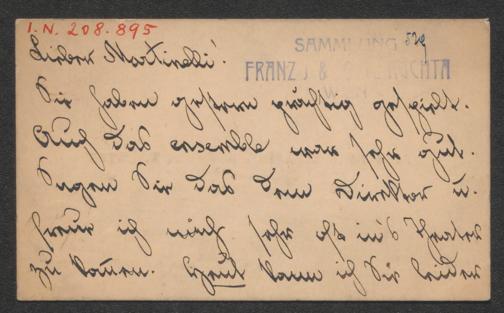 I.N. 208.895
SAMMLUNG
529
FRANZ
Lieber Martinelli!
Sie haben gestern prächtig gespielt.
Auch das ensemble war sehr gut.
Sagen Sie das dem Direktor u.
freue ich mich sehr oft in's Theater
zu kommen. Heut kann ich Sie leider